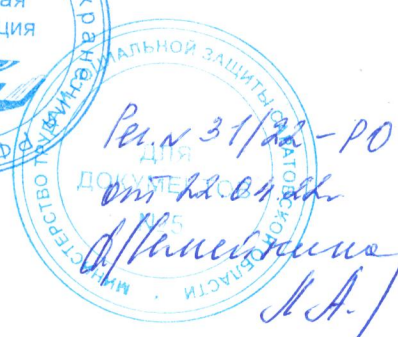 ая
ция
МИНИСТЕРСТВО ТРУДА И СОЦИАЛЬНОЙ ЗАЩИТЫ САРАТОВСКОЙ ОБЛАСТИ
ДЛЯ
ДОКУМЕНТОВ
№5
Рег. № 31/22-РО
от 22.04.22г.
М.А./